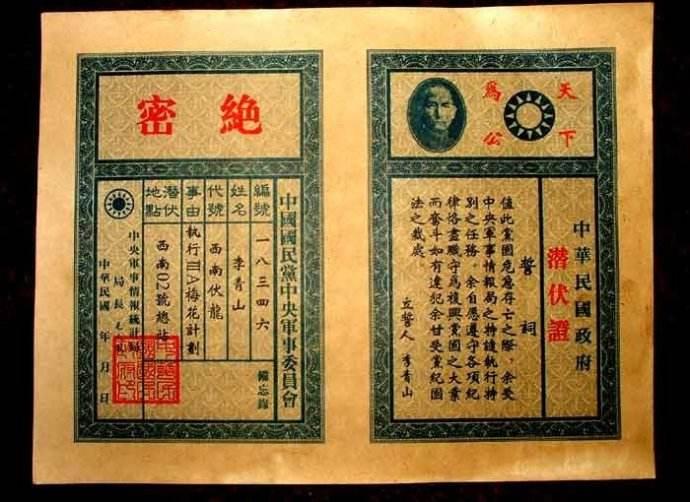 天下
爲公
中華民國政府
潜伏證
誓詞
值此黨國危急存亡之際，余受
中央軍事情報局之特諉執行特
別之任務，余自愿遵守各項紀
律恪盡職守爲複興黨國之大業
而奮斗如有違紀余甘受黨紀國
法之裁處
立誓人 李青山
絕密
中國國民黨中央軍事委員會
備忘錄
編號 一八三四六
姓名 李青山
代號 西南伏龍
事由 執行ⅢA梅花計劃
潜伏地點 西南02號總站
中央軍事情報統計局
局長 毛
中華民國 年 月 日